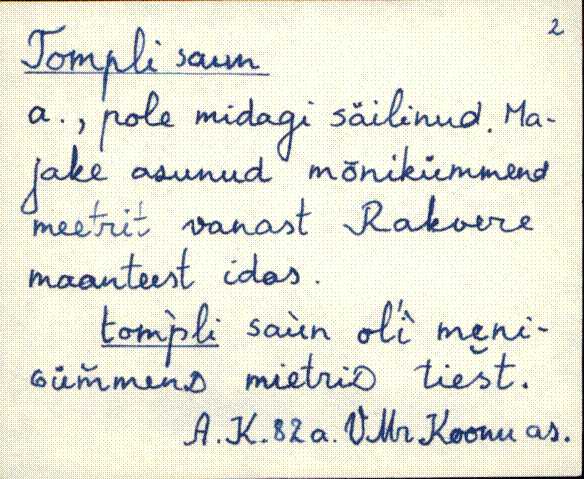 2
Tompli saun
a., pole midagi säilinud. Ma-
jake asunud mõnikümmend
meetrit vanast Rakvere
maanteest idas.
tom̀pli saùn oĺì mȩni-
GÜm̆menD mietriD tiešt.
A.K. 82 a. VMr Koonu as.